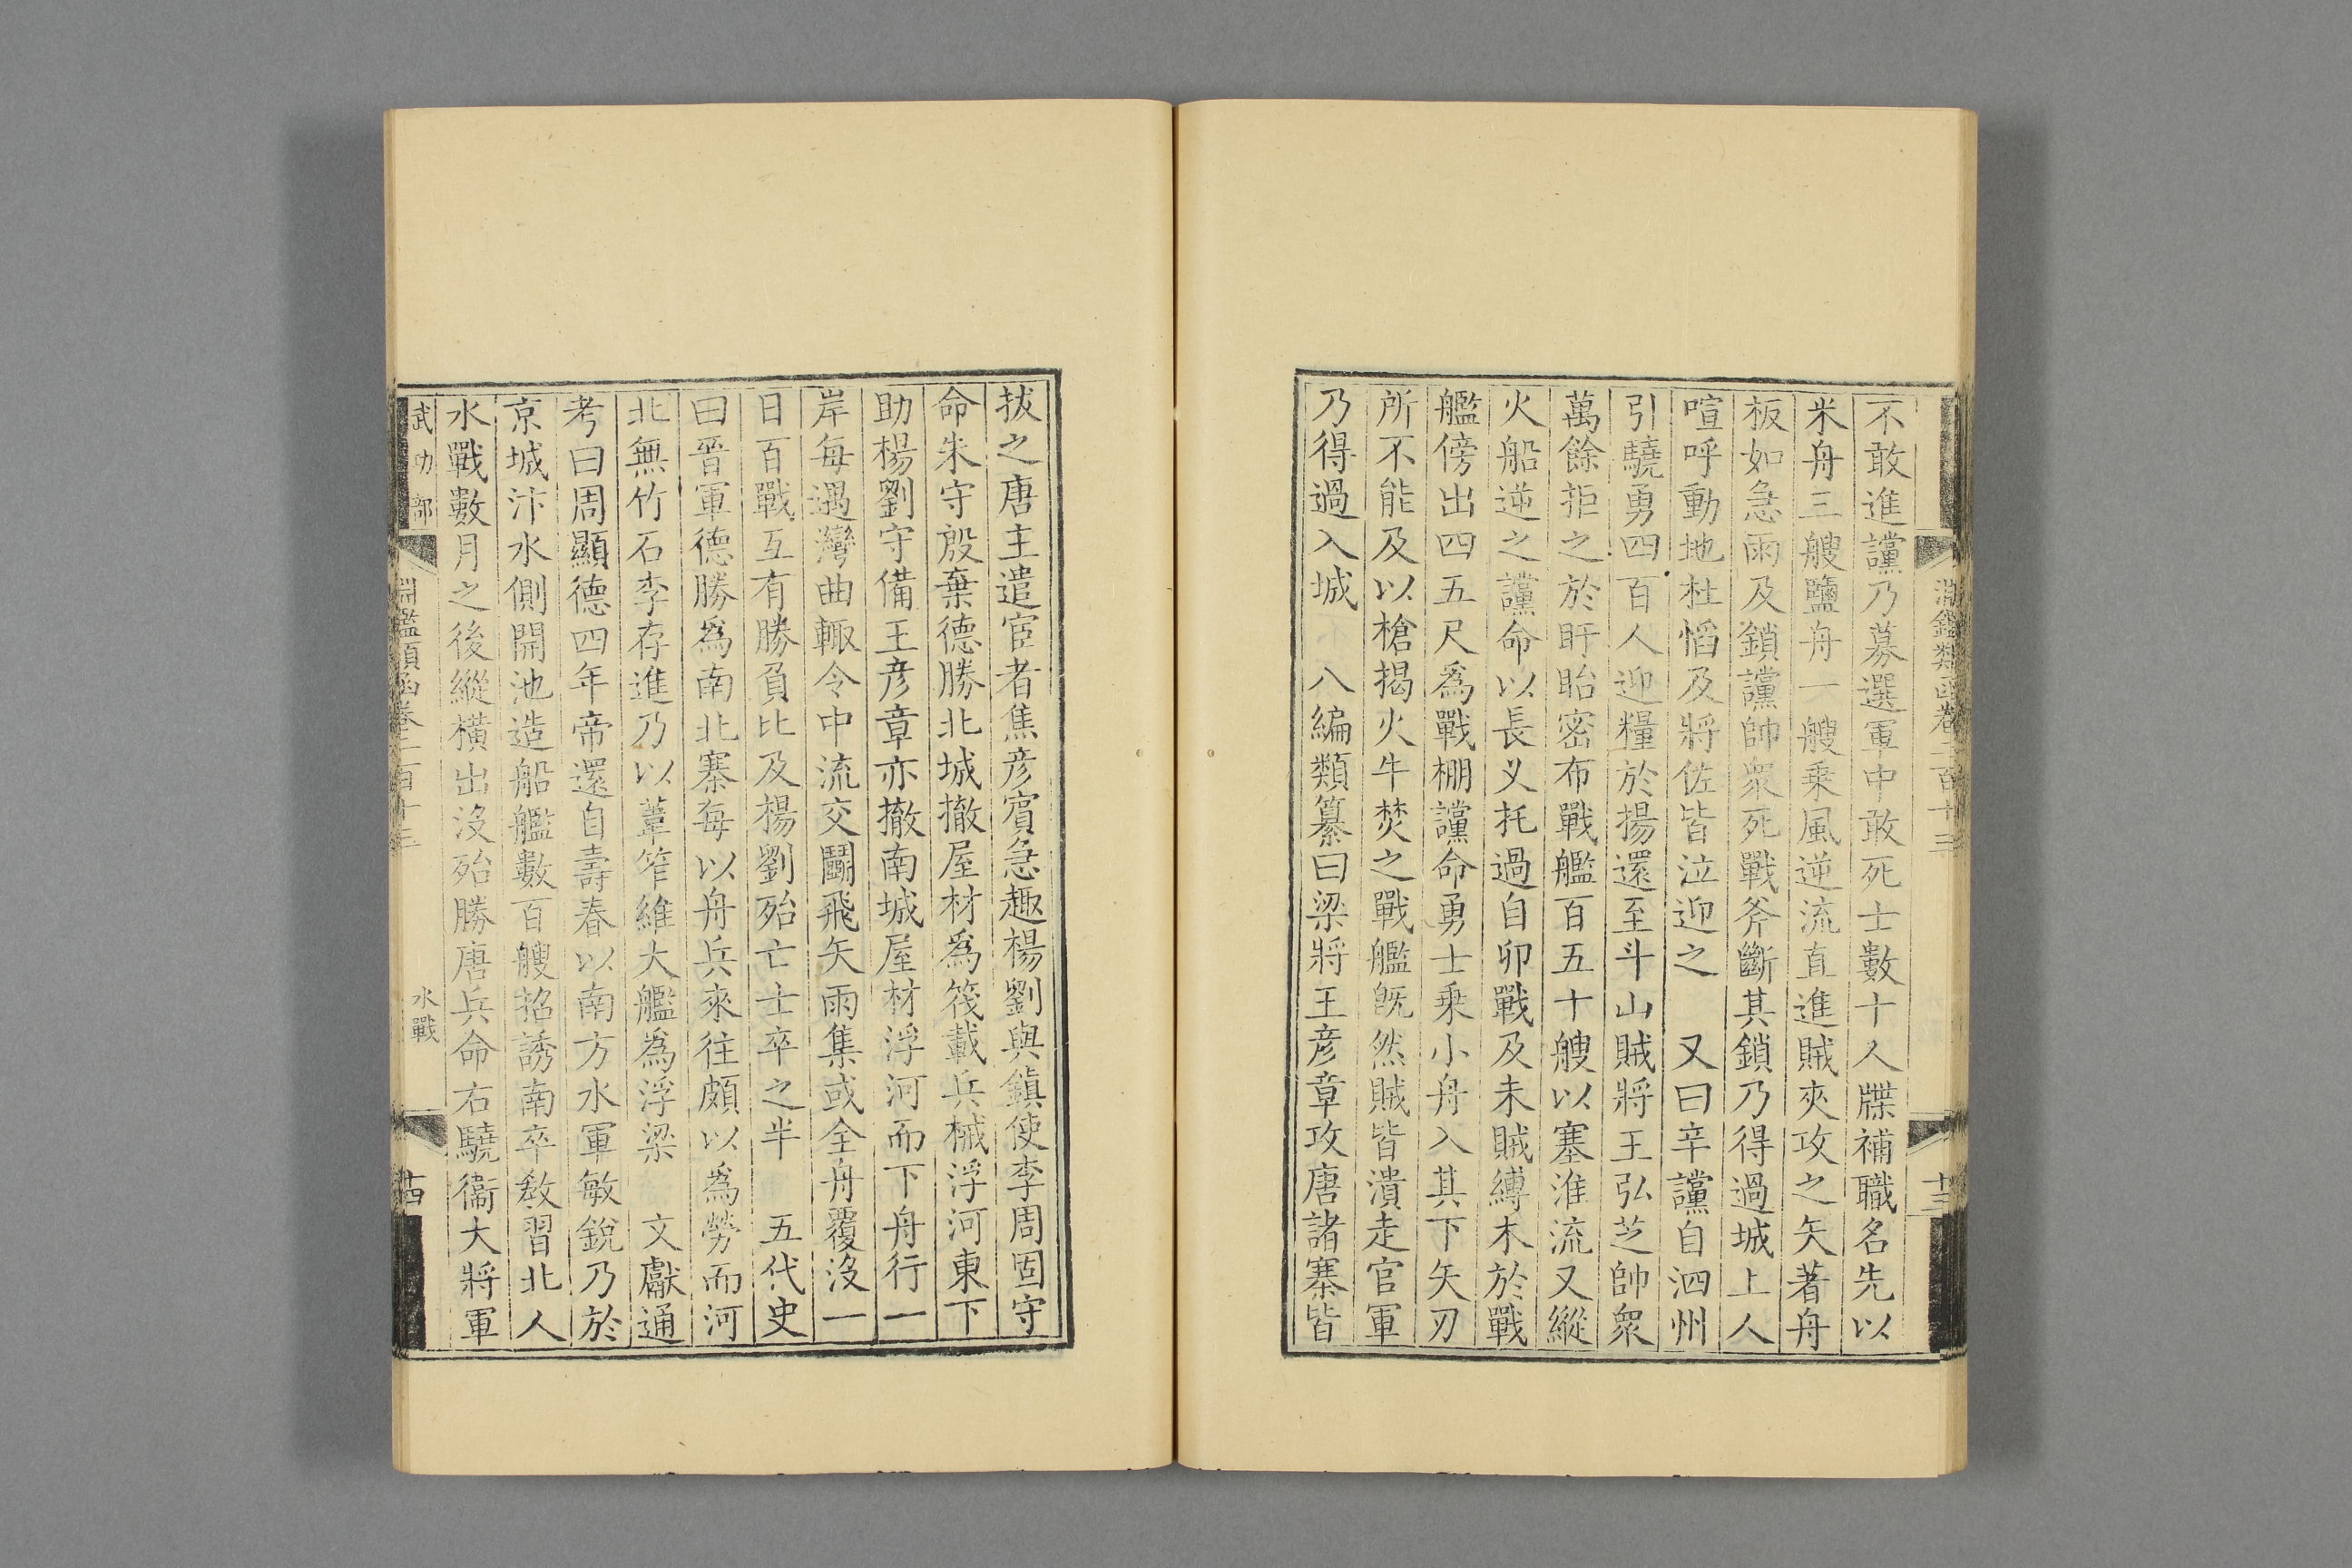 淵鑑類函卷二百十三
十三
不敢進讜乃募選軍中敢死士數十人牒補職名先以
米舟三艘鹽舟一艘乗風逆流直進賊夾攻之矢著舟
板如急雨及鎖讜帥衆死戰斧斷其鎖乃得過城上人
喧呼動地杜慆及將佐皆泣迎之　又曰辛讜自泗州
引驍勇四百人迎糧於揚還至斗山賊將王弘芝帥衆
萬餘拒之於盱眙密布戰艦百五十艘以塞淮流又縱
火船逆之讜命以長义托過自卯戰及未賊縛木於戰
艦傍出四五尺爲戰棚讜命勇士乗小舟入其下矢刃
所不能及以槍揭火牛焚之戰艦旣然賊皆潰走官軍
乃得過入城　八編類纂曰梁將王彦章攻唐諸寨皆
拔之唐主遣宦者焦彦賔急趣楊劉與鎮使李周固守
命朱守殷棄德勝北城撤屋材爲筏載兵械浮河東下
助楊劉守備王彦章亦撤南城屋材浮河而下舟行一
岸每遇灣曲輙令中流交鬬飛矢雨集或全舟覆沒一
日百戰互有勝負比及楊劉殆亡士卒之半　五代史
曰晉軍德勝爲南北寨每以舟兵來往頗以爲勞而河
北無竹石李存進乃以葦筰維大艦爲浮梁　文獻通
考曰周顯德四年帝還自壽春以南方水軍敏銳乃於
京城汴水側開池造船艦數百艘招誘南卒敎習北人
水戰數月之後縱橫出沒殆勝唐兵命右驍衞大將軍
武功部
淵鑑類函卷二百十三
水戰
十四